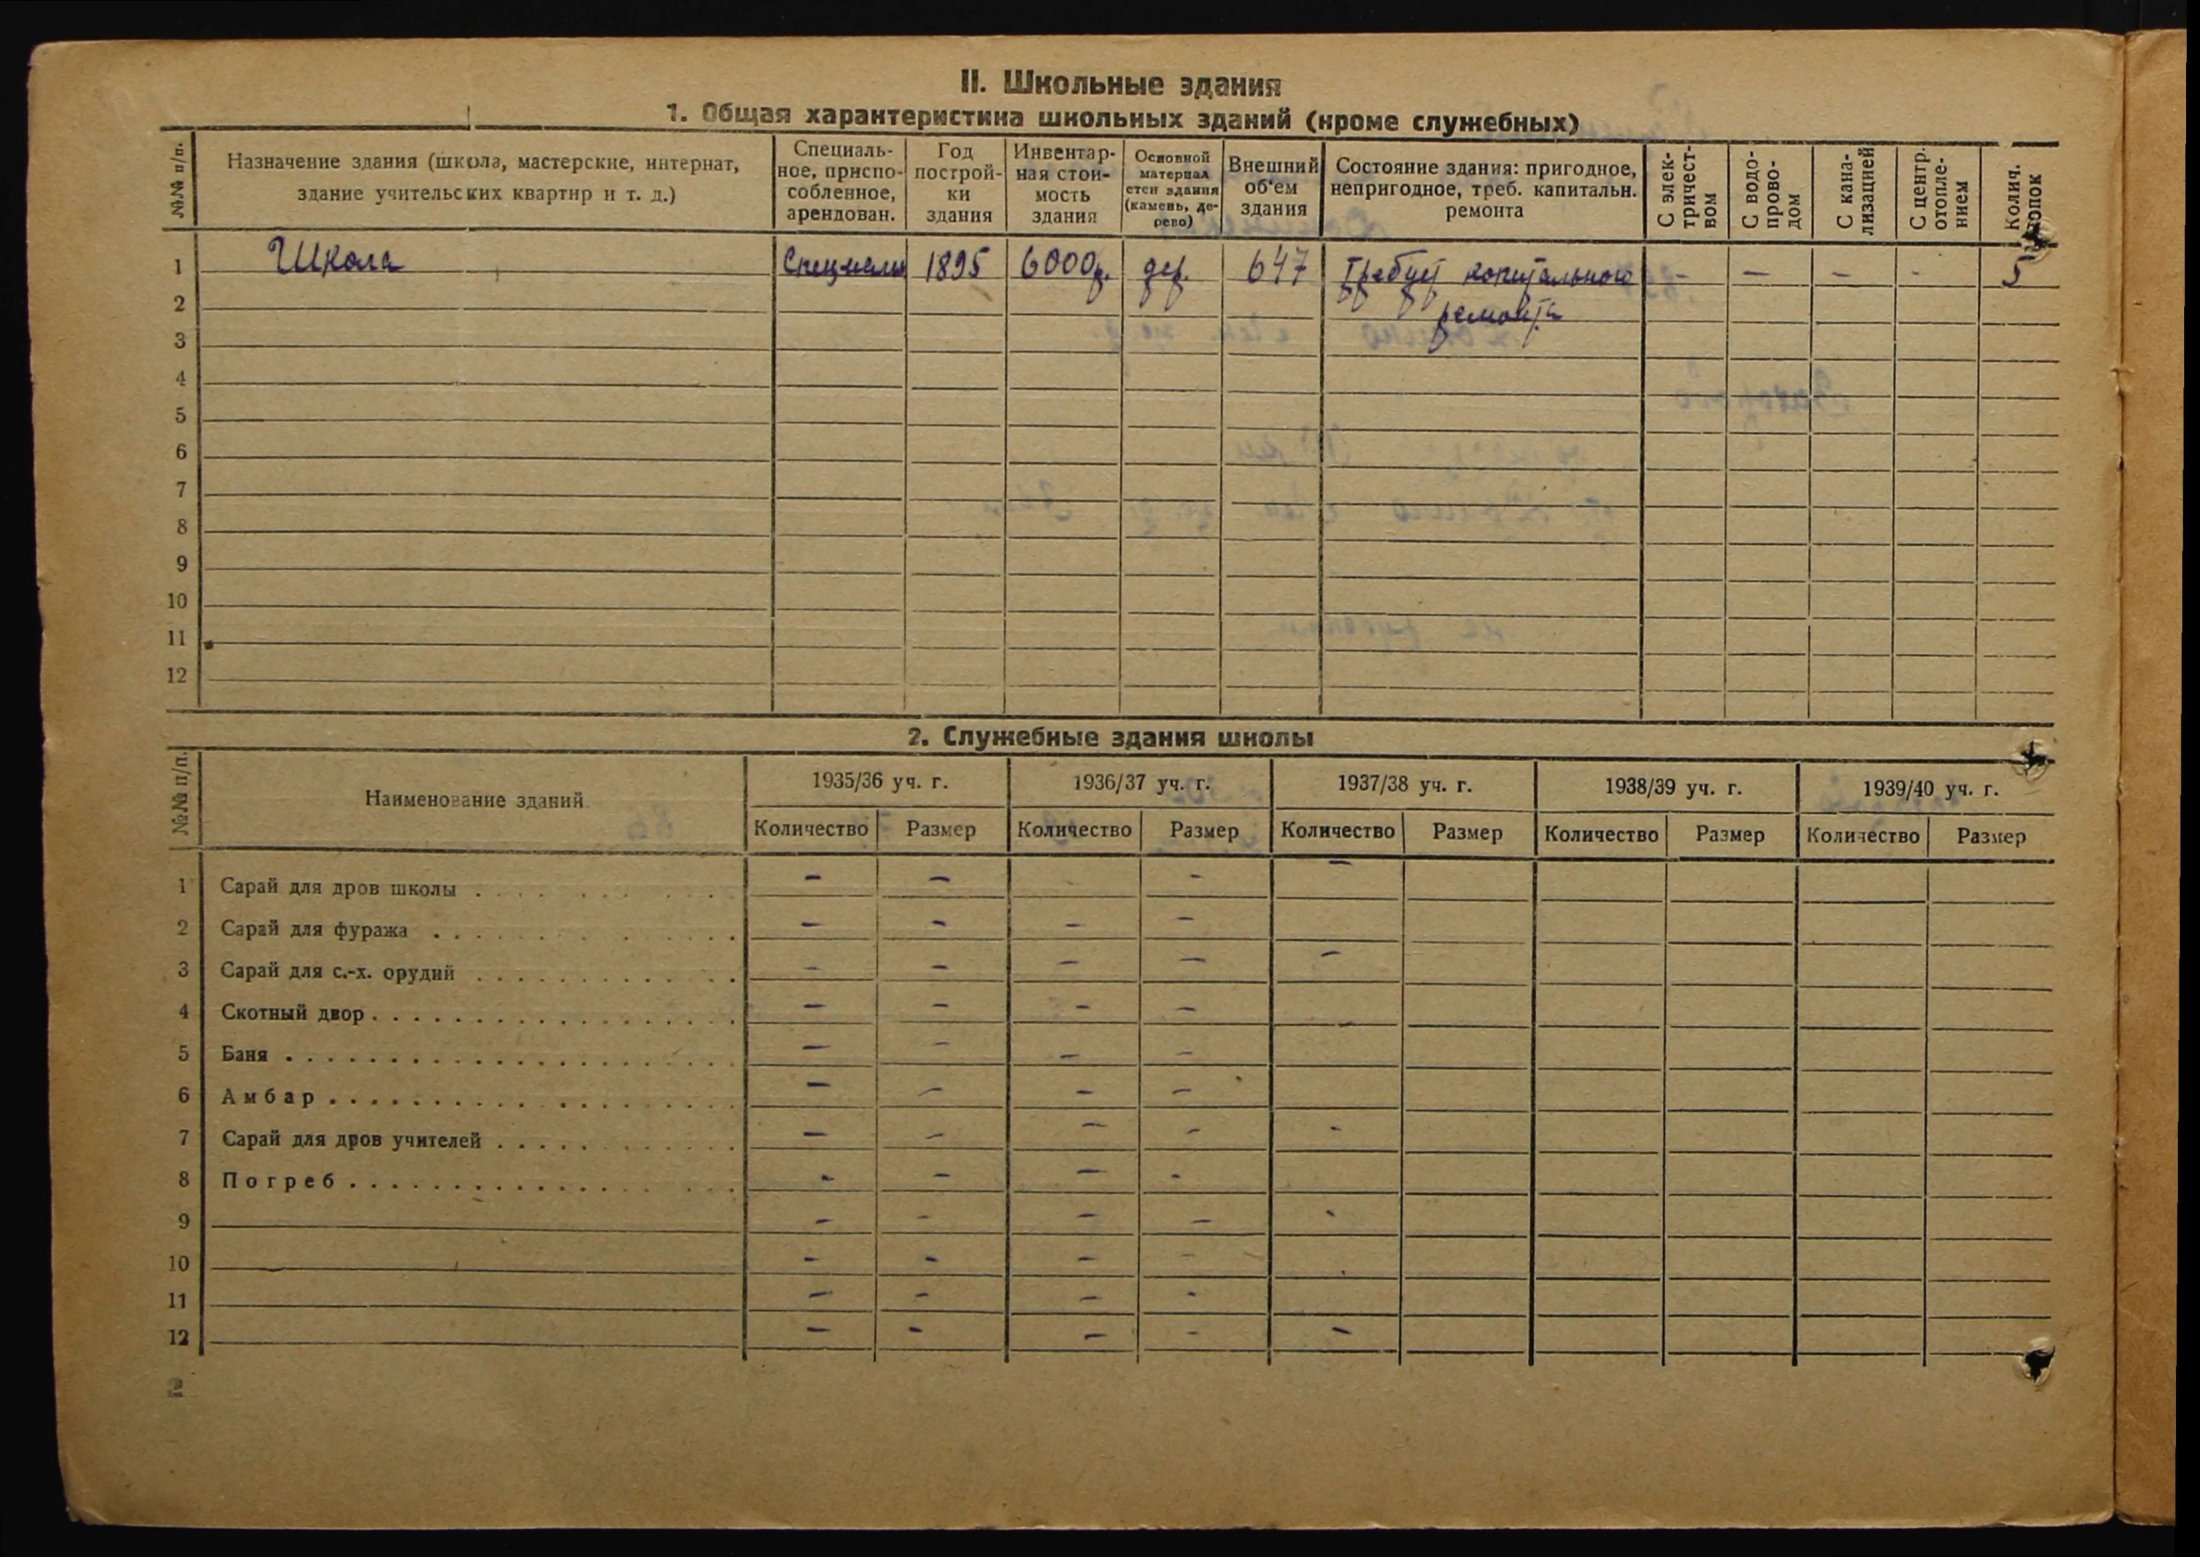 II. Школьные здания
1. Общая характеристика школьных зданий (кроме служебных)
№№ п/п.
Назначение здания (школа, мастерские, интернат,
здание учительских квартир и т. д.)
Специаль-
ное, приспо-
собленное,
арендован.
Год
построй-
ки
здания
Инвентар-
ная стои-
мость
здания
Основной
материал
стен здания
(камень, де-
рево)
Внешний
об'ем
здания
Состояние здания: пригодное,
непригодное, треб. капитальн.
ремонта
С элек-
тричест-
вом
С водо-
прово-
дом
С кана-
лизацией
С центр.
отопле-
нием
Колич.
топок
1 Школа Специальн 1895 6000р. дер. 647 Требует копитального - — - - 5
ремонта
2
3
4
5
6
7
8
9
10
11
12
2. Служебные здания школы
№№ п/п.
Наименование зданий
1935/36 уч. г. 1936/37 уч. г. 1937/38 уч. г. 1938/39 уч. г. 1939/40 уч. г.
Количество Размер Количество Размер Количество Размер Количество Размер Количество Размер
1 Сарай для дров школы - - - -
2 Сарай для фуража - - - -
3 Сарай для с.-х. орудий - - - - -
4 Скотный двор - - - -
5 Баня - - - -
6 Амбар - - - -
7 Сарай для дров учителей - - - - -
8 Погреб - - - -
9 - - - - -
10 - - - -
11 - - - -
12 - - - - -
2